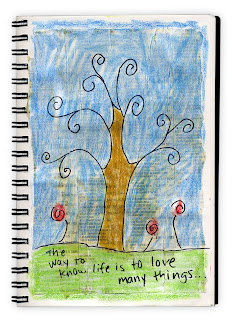 the
way to
know life is to love
many things...